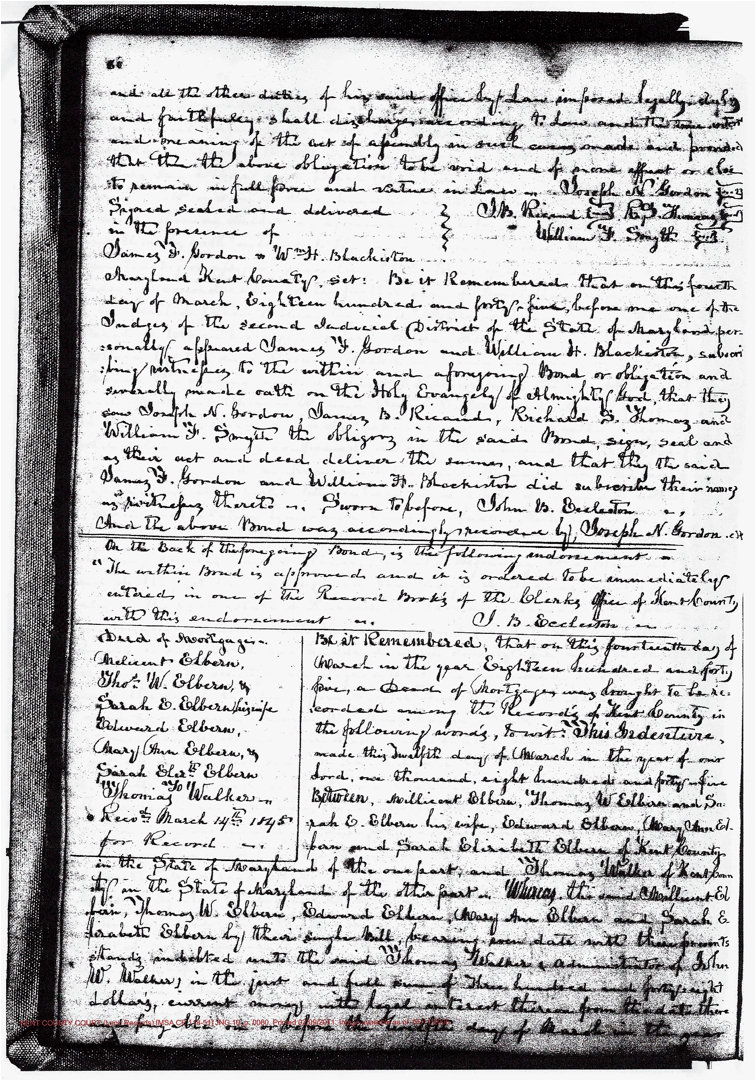 86
and all the other duties of his said office by Law imposed legally duly
and faithfully shall discharge according to Law and the true intent
and meaning of the act of assembly in such cases made and provided
that then the above obligation to be void and of none effect or else
to remain in full force and virtue in Law Joseph N. Gordon
Signed sealed and delivered J.B. Ricaud R.S. Thomas
in the presence of William F. Smyth
James F. Gordon Wm. H. Blackiston
Maryland Kent County, sct: Be it Remembered that on this fourth
day of March, Eighteen hundred and forty-five, before me one of the
Judges of the second Judicial District of the State of Maryland per-
sonally appeared James F. Gordon and William H. Blackiston, subscri
bing witnesses to the within and aforegoing Bond or obligation and
severally made oath on the Holy Evangely of Almighty God, that they
saw Joseph N. Gordon, James B. Ricaud, Richard S. Thomas and
William F. Smyth the obligors in the said Bond, sign, seal and
as their act and deed, deliver the same, and that they the said
James F. Gordon and William H. Blackiston did subscribe their names
as witnesses thereto Sworn to before, John B. Eccleston
And the above Bond was accordingly recorded by, Joseph N. Gordon Clk
On the Back of the foregoing Bond, is the following endorsement
"The within Bond is approved and it is ordered to be immediately
entered in one of the Record Books of the Clerks office of Kent County
with this endorsement J. B. Eccleston
Deed of Mortgage
Melicent Elbern,
Thos. W. Elbern, &
Sarah E. Elbern his wife
Edward Elbern,
Mary Ann Elbern, &
Sarah Elizth Elbern
"To"
Thomas Walker
Recd. March 14th 1845
for Record
Be it Remembered, that on this fourteenth day of
March in the year Eighteen hundred and forty
five, a Deed of Mortgage was brought to be re-
corded among the Records of Kent County in
the following words, to wit: "This Indenture,
made this Twelfth day of March in the year of our
Lord, one thousand, eight hundred and forty-five
Between, Millicent Elbern, Thomas W Elbern and Sa-
rah E. Elbern his wife, Edward Elbern, Mary Ann El-
bern and Sarah Elizabeth Elbern of Kent County
in the State of Maryland of the one part, and Thomas Walker of Kent Coun
ty in the State of Maryland of the other part Whereas the said Millicent El
bern, Thomas W. Elbern, Edward Elbern, Mary Ann Elbern and Sarah E
lizabeth Elbern by their single Bill, bearing even date with these presents
stands indebted unto the said Thomas Walker administrator of John
W. Walker, in the just and full sum of Three hundred and forty eight
dollars, current money, with legal interest thereon from the date there
before the Twelfth day of March in the year
KENT COUNTY COURT (Land Records)